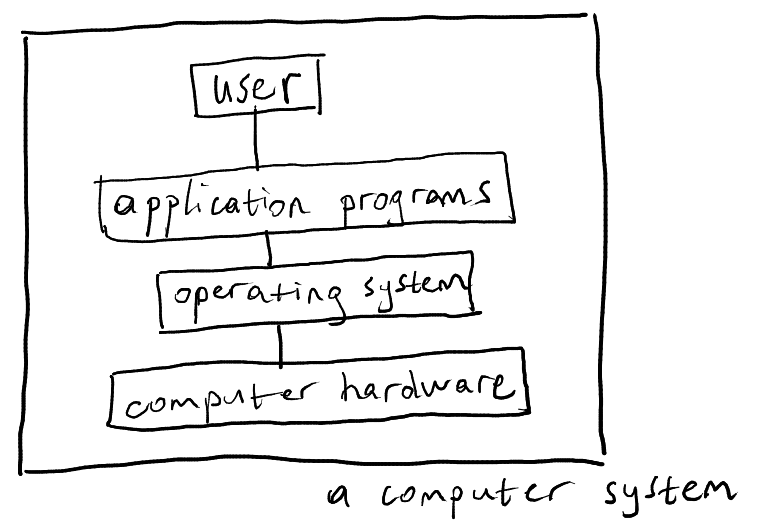 user
application programs
operating system
computer hardware
a computer system